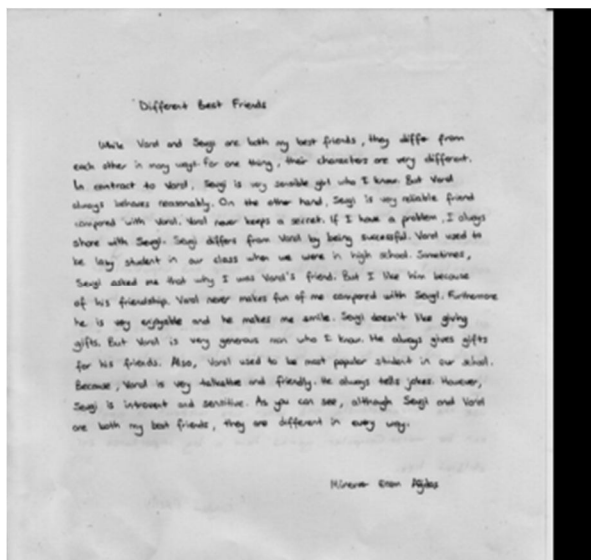 Different Best Friends
While Vural and Sevgi are both my best friends, they differ from
each other in many ways. For one thing, their characters are very different.
In contract to Vural, Sevgi is very sensible girl who I know. But Vural
always behaves reasonably. On the other hand, Sevgi is very reliable friend
compared with Vural. Vural never keeps a secret. If I have a problem, I always
share with Sevgi. Sevgi differs from Vural by being successful. Vural used to
be lazy student in our class when we were in high school. Sometimes,
Sevgi asked me that why I was Vural's friend. But I like him because
of his friendship. Vural never makes fun of me compared with Sevgi. Furthermore
he is very enjoyable and he makes me smile. Sevgi doesn't like giving
gifts. But Vural is very generous man who I know. He always gives gifts
for his friends. Also, Vural used to be most popular student in our school.
Because, Vural is very talkative and friendly. He always tells jokes. However,
Sevgi is introvert and sensitive. As you can see, although Sevgi and Vural
are both my best friends, they are different in every way.